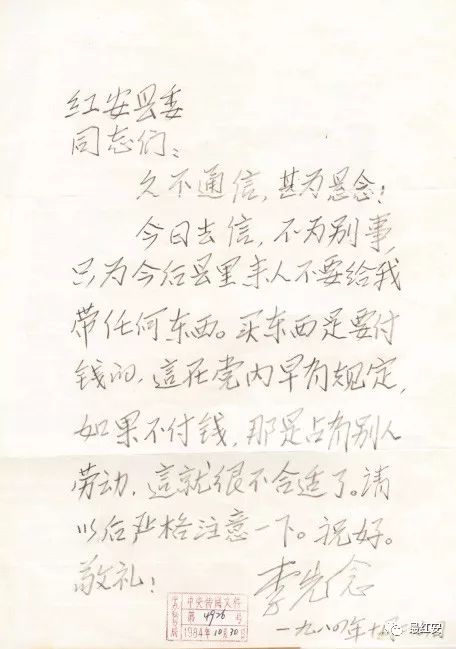 红安县委
同志们：
久不通信，甚为悬念！
今日去信，不为别事，
只为今后县里来人不要给我
带任何东西。买东西是要付
钱的，這在党内早有规定，
如果不付钱，那是占有别人
劳动，這就很不合适了。请
以后严格注意一下。祝好。
敬礼！
李先念
一九八四年十月
中央传阅文件
第4926号
1984年10月30日
最红安